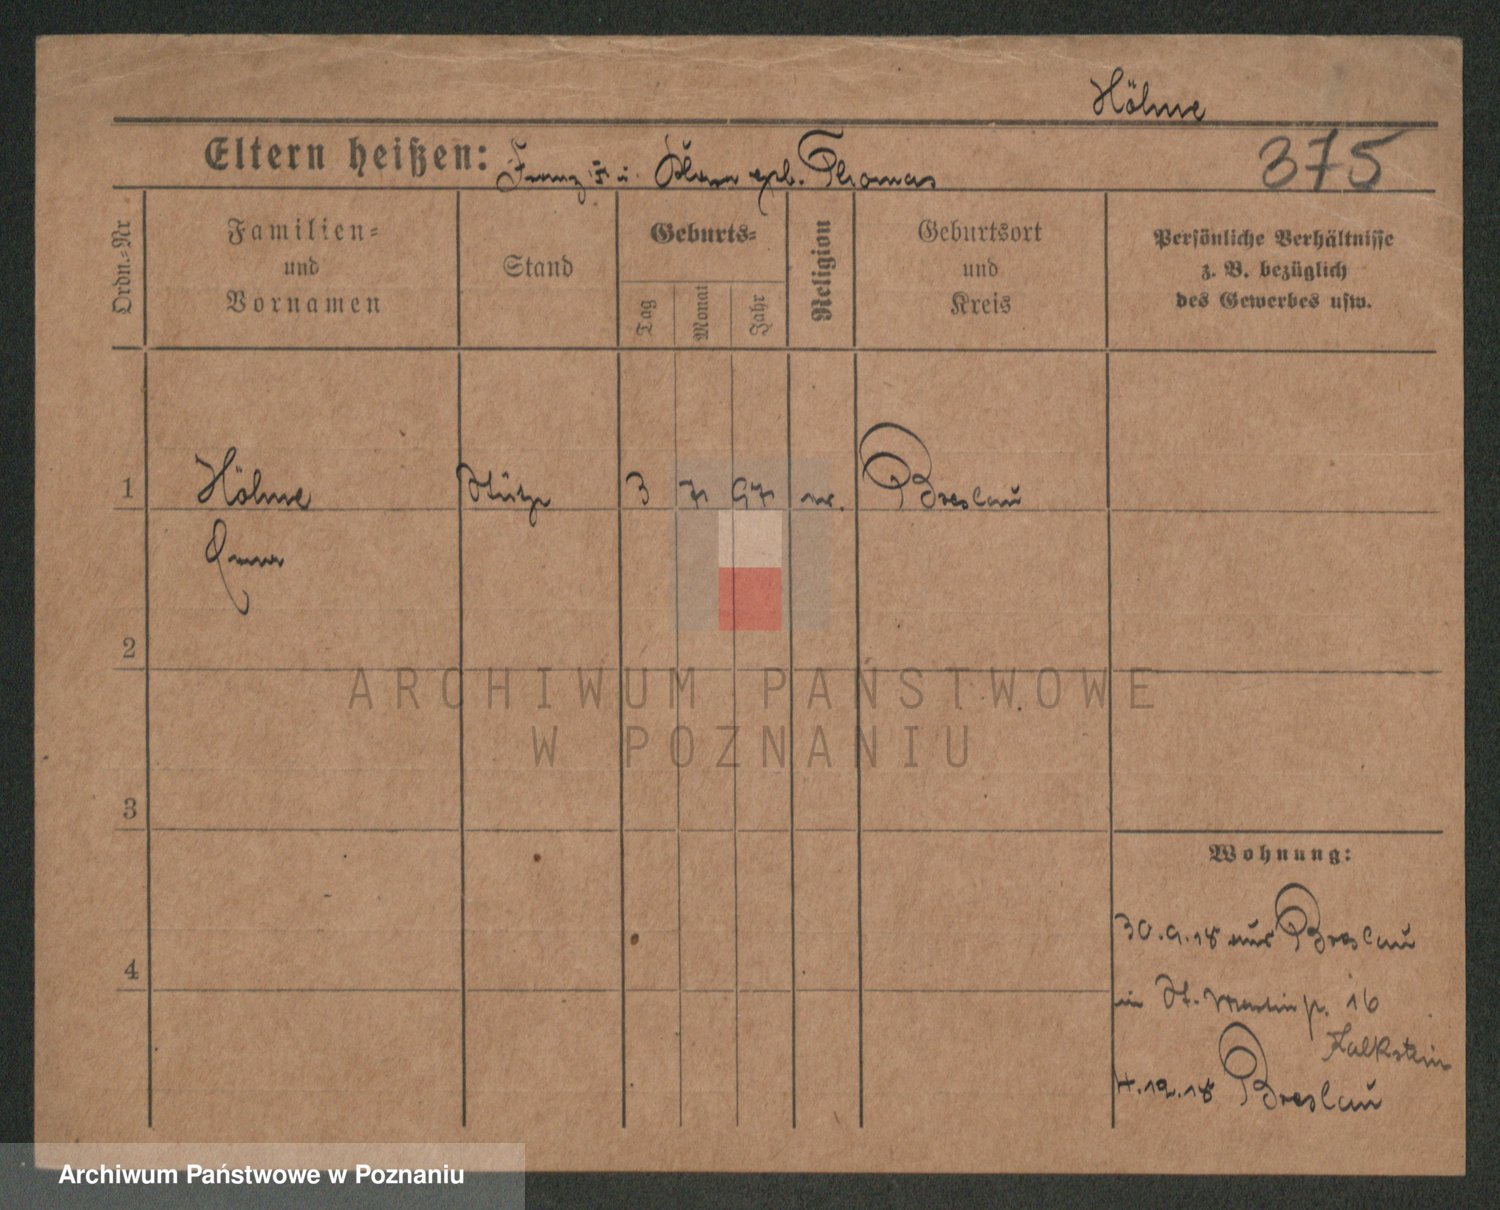 Höhne
Eltern heißen: Franz u. Klara geb. Thomas
375
Ordn.-Nr
Familien-
und
Vornamen
Stand
Geburts-
Tag
Monat
Jahr
Religion
Geburtsort
und
Kreis
Persönliche Verhältnisse
z. B. bezüglich
des Gewerbes usw.
1 Höhne Stütze 3 7 97 Breslau
Anna
2
3
4
Wohnung:
30.9.18 aus Breslau
in St. Martin 16
Kalkstein
4.12.18 Breslau
ARCHIWUM PAŃSTWOWE
W POZNANIU
Archiwum Państwowe w Poznaniu